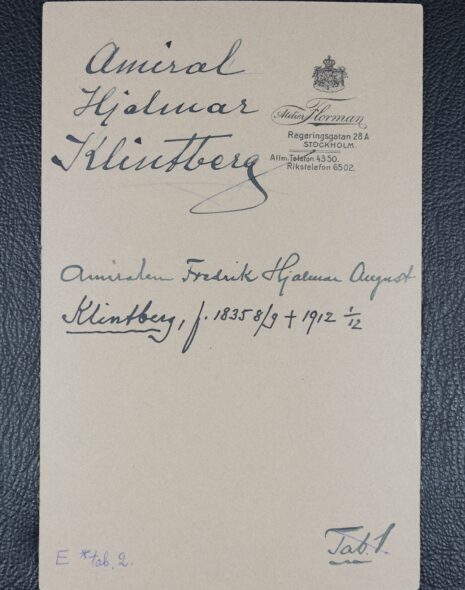 Amiral
Hjalmar
Klintberg
Atelier Florman
Regeringsgatan 28 A
STOCKHOLM.
Allm. Telefon 43 50.
Rikstelefon 65 02.
Amiralen Fredrik Hjalmar August
Klintberg, f. 1835 8/9 + 1912 1/12
E * tab. 2.
Tab. 1.